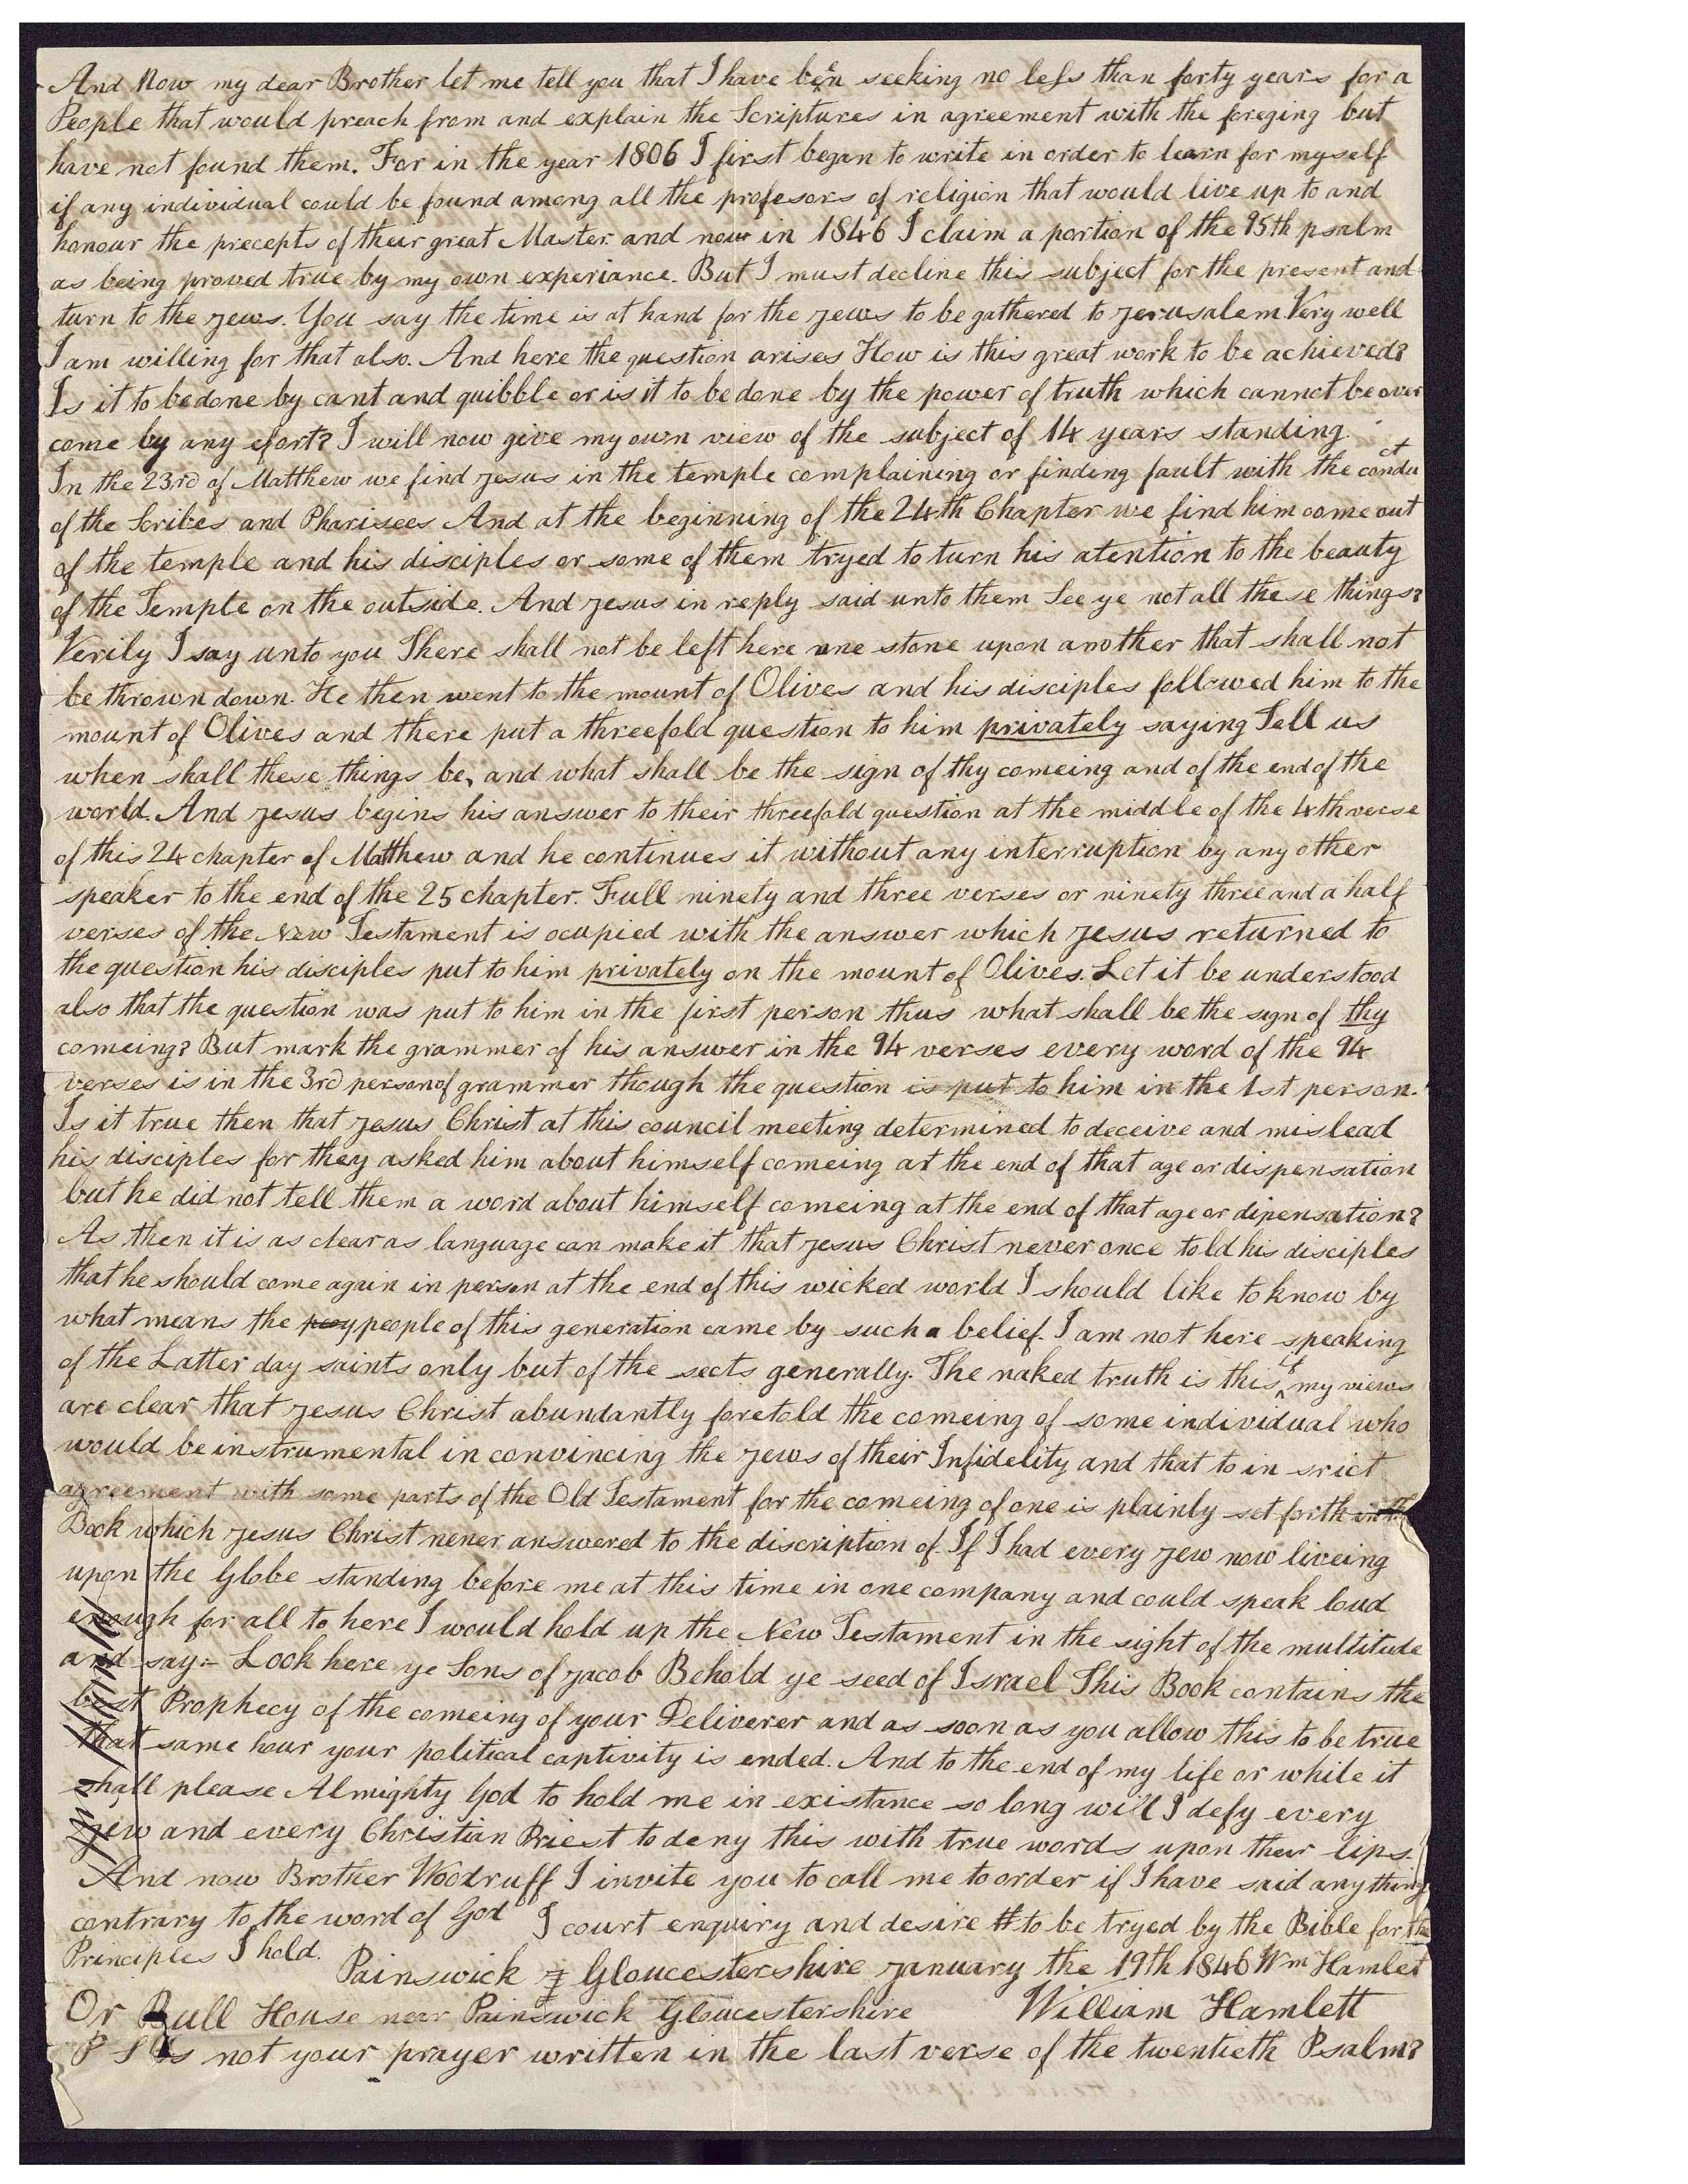 And Now my dear Brother let me tell you that I have been seeking no less than forty years for a
People that would preach from and explain the Scriptures in agreement with the foreging but
have not found them. For in the year 1806 I first began to write in order to learn for myself
if any individual could be found among all the profesors of religion that would live up to and
honour the precepts of their great Master and now in 1846 I claim a portion of the 95th psalm
as being proved true by my own experiance. But I must decline this subject for the present and
turn to the Jews. You say the time is at hand for the Jews to be gathered to Jerusalem Very well
I am willing for that also. And here the question arises How is this great work to be achieved?
Is it to be done by cant and quibble or is it to be done by the power of truth which cannot be over
come by any efort? I will now give my own view of the subject of 14 years standing.
In the 23rd of Matthew we find Jesus in the temple complaining or finding fault with the conduct
of the Scribes and Pharisees And at the beginning of the 24th Chapter we find him come out
of the temple and his disciples or some of them tryed to turn his atention to the beauty
of the Temple on the outside. And Jesus in reply said unto them See ye not all these things?
Verily I say unto you There shall not be left here one stone upon another that shall not
be thrown down. He then went to the mount of Olives and his disciples followed him to the
mount of Olives and there put a threefold question to him privately saying Tell us
when shall these things be, and what shall be the sign of thy comeing and of the end of the
world. And Jesus begins his answer to their threefold question at the middle of the 4th verse
of this 24 chapter of Matthew and he continues it without any interruption by any other
speaker to the end of the 25 chapter. Full ninety and three verses or ninety three and a half
verses of the New Testament is ocupied with the answer which Jesus returned to
the question his disciples put to him privately on the mount of Olives. Let it be understood
also that the question was put to him in the first person thus what shall be the sign of thy
comeing? But mark the grammer of his answer in the 94 verses every word of the 94
verses is in the 3rd person of grammer though the question is put to him in the 1st person.
Is it true then that Jesus Christ at this council meeting determined to deceive and mislead
his disciples for they asked him about himself comeing at the end of that age or dispensation
but he did not tell them a word about himself comeing at the end of that age or dipensation?
As then it is as clear as language can make it that Jesus Christ never once told his disciples
that he should come again in person at the end of this wicked world I should like to know by
what means the peey people of this generation came by such a belief. I am not here speaking
of the Latter day saints only but of the sects generally. The naked truth is this if my views
are clear that Jesus Christ abundantly foretold the comeing of some individual who
would be instrumental in convincing the Jews of their Infidelity and that to in srict
agreement with some parts of the Old Testament for the comeing of one is plainly set forth in th
Book which Jesus Christ never answered to the discription of. If I had every Jew now liveing
upon the Globe standing before me at this time in one company and could speak loud
enough for all to here I would hold up the New Testament in the sight of the multitude
and say:- Look here ye Sons of Jacob Behold ye seed of Israel This Book contains the
best Prophecy of the comeing of your Deliverer and as soon as you allow this to be true
that same hour your political captivity is ended. And to the end of my life or while it
shall please Almighty God to hold me in existance so long will I defy every
Jew and every Christian Priest to deny this with true words upon their lips.
And now Brother Woodruff I invite you to call me to order if I have said anything
contrary to the word of God I court enquiry and desire to be tryed by the Bible for the
Principles I hold.
Painswick Gloucestershire January the 19th 1846 Wm Hamlet
Or Bull House near Painswick Gloucestershire William Hamlett
P S Is not your prayer written in the last verse of the twentieth Psalm?